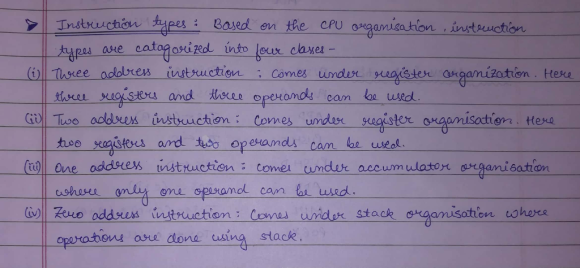 ➤ Instruction types : Based on the CPU organisation, instruction
types are catagorized into four clases -
(i) Three address instruction : Comes under register organization. Here
three registers and three operands can be used.
(ii) Two address instruction : Comes under register organisation. Here
two registers and two operands can be used.
(iii) One address instruction : comes under accumulator organisation
where only one operand can be used.
(iv) Zero address instruction : Comes under stack organisation where
operations are done using stack.